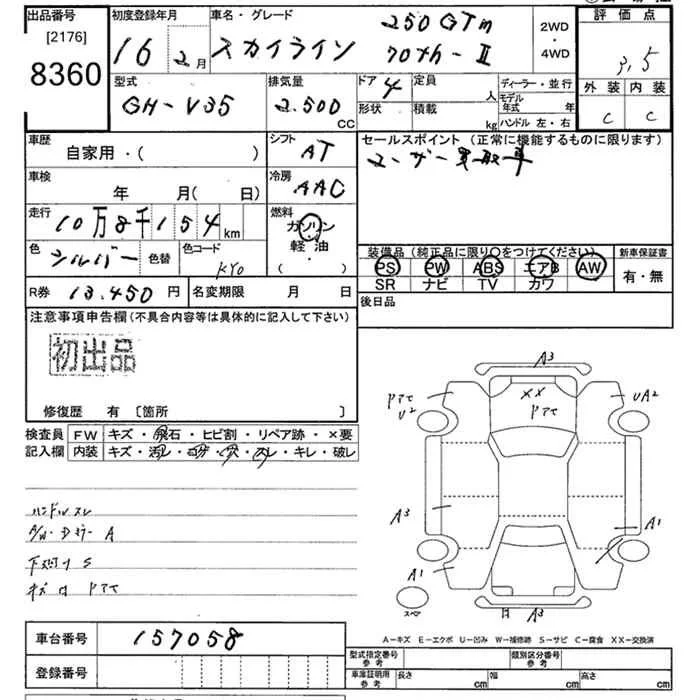 出品番号
[2176]
8360
初度登録年月
16 2月
車名・グレード
スカイライン
250GTm
70th-II
2WD
・
4WD
評価点
3.5
外装 内装
C C
型式
GH-V35
排気量
2.500 CC
ドア 4
形状
定員 人
積載 kg
ディーラー・並行
モデル年式 年
ハンドル 左・右
車歴
自家用・( )
シフト
AT
セールスポイント (正常に機能するものに限ります)
ユーザー買取車
車検
年 月( 日)
冷房
AAC
走行
10万8千154km
燃料
ガソリン
軽・油
・( )
色
シルバー
色替
色コード
KY0
装備品 (純正品に限り○をつけてください)
PS PW ABS エアB AW
SR ナビ TV カワ
新車保証書
有・無
R券 13.450円
名変期限 月 日
後日品
注意事項申告欄(不具合内容等は具体的に記入して下さい)
初出品
修復歴 有 [箇所 ]
検査員
記入欄
FW キズ・飛石・ヒビ割・リペア跡・×要
内装 キズ・汚レ・コゲ・穴・スレ・キレ・破レ
ハンドルスレ
A/W・Dミラー A
下廻り S
A3
××
UA2
U2
A3
A1
A1
A3
スペア
A-キズ E-エクボ U-凹み W-補修跡 S-サビ C-腐食 XX-交換済
車台番号 157058
登録番号
型式指定番号
参考
類別区分番号
参考
車庫証明用
参考
長さ cm
幅 cm
高さ cm